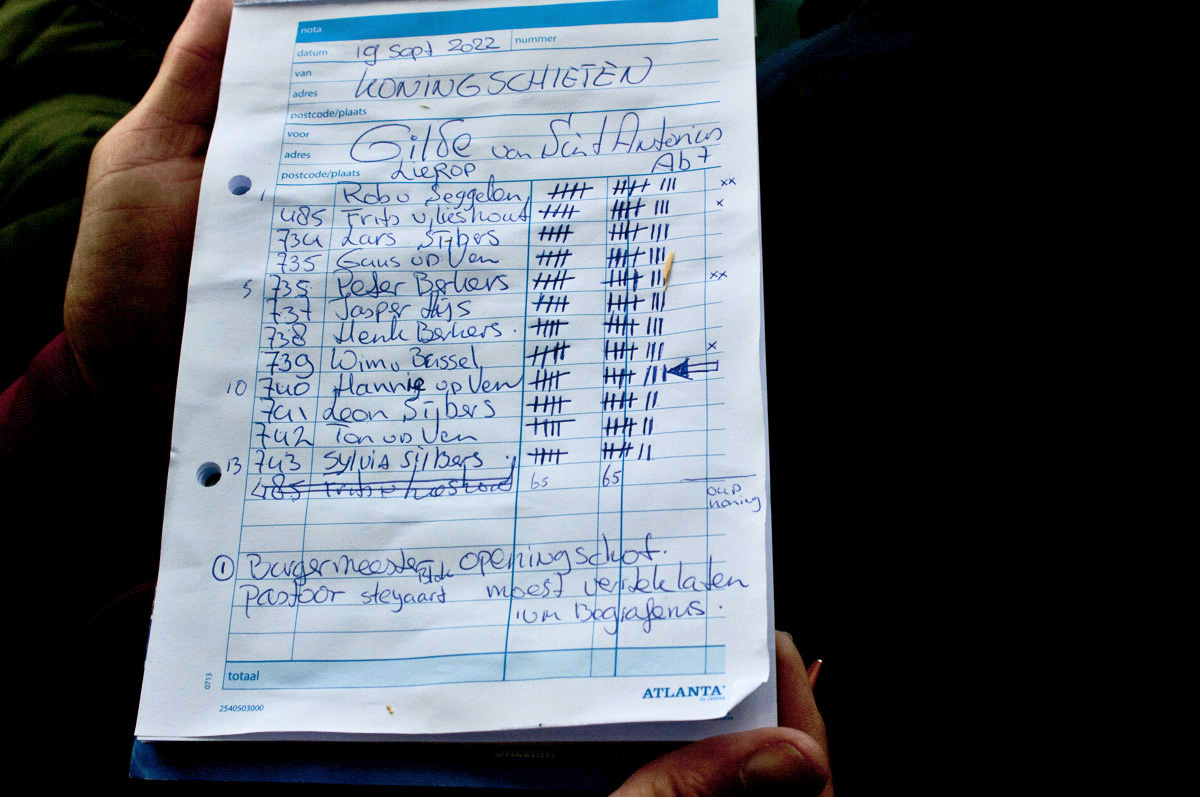 nota
datum 19 sept 2022 nummer
van
adres KONINGSCHIETEN
postcode/plaats
voor
adres Gilde van Sint Antonius
postcode/plaats LIEROP Ab 7
1 Rob v Seggelen xx
485 Frits v Lieshout x
734 Lars Sijbers
735 Guus op Ven
5 735 Peter Berkers xx
737 Jasper
738 Henk Berkers
739 Wim v Bussel x
10 740 Hannie op Ven
741 Leon Sijbers
742 Ton op Ven
13 743 Sylvia Sijbers
485 Frits v Lieshout 65 65
oud
koning
1 Burgermeester openingschot.
Pastoor steyaart moest verstek laten
ivm Begrafenis.
totaal
0713
ATLANTA
2540503000